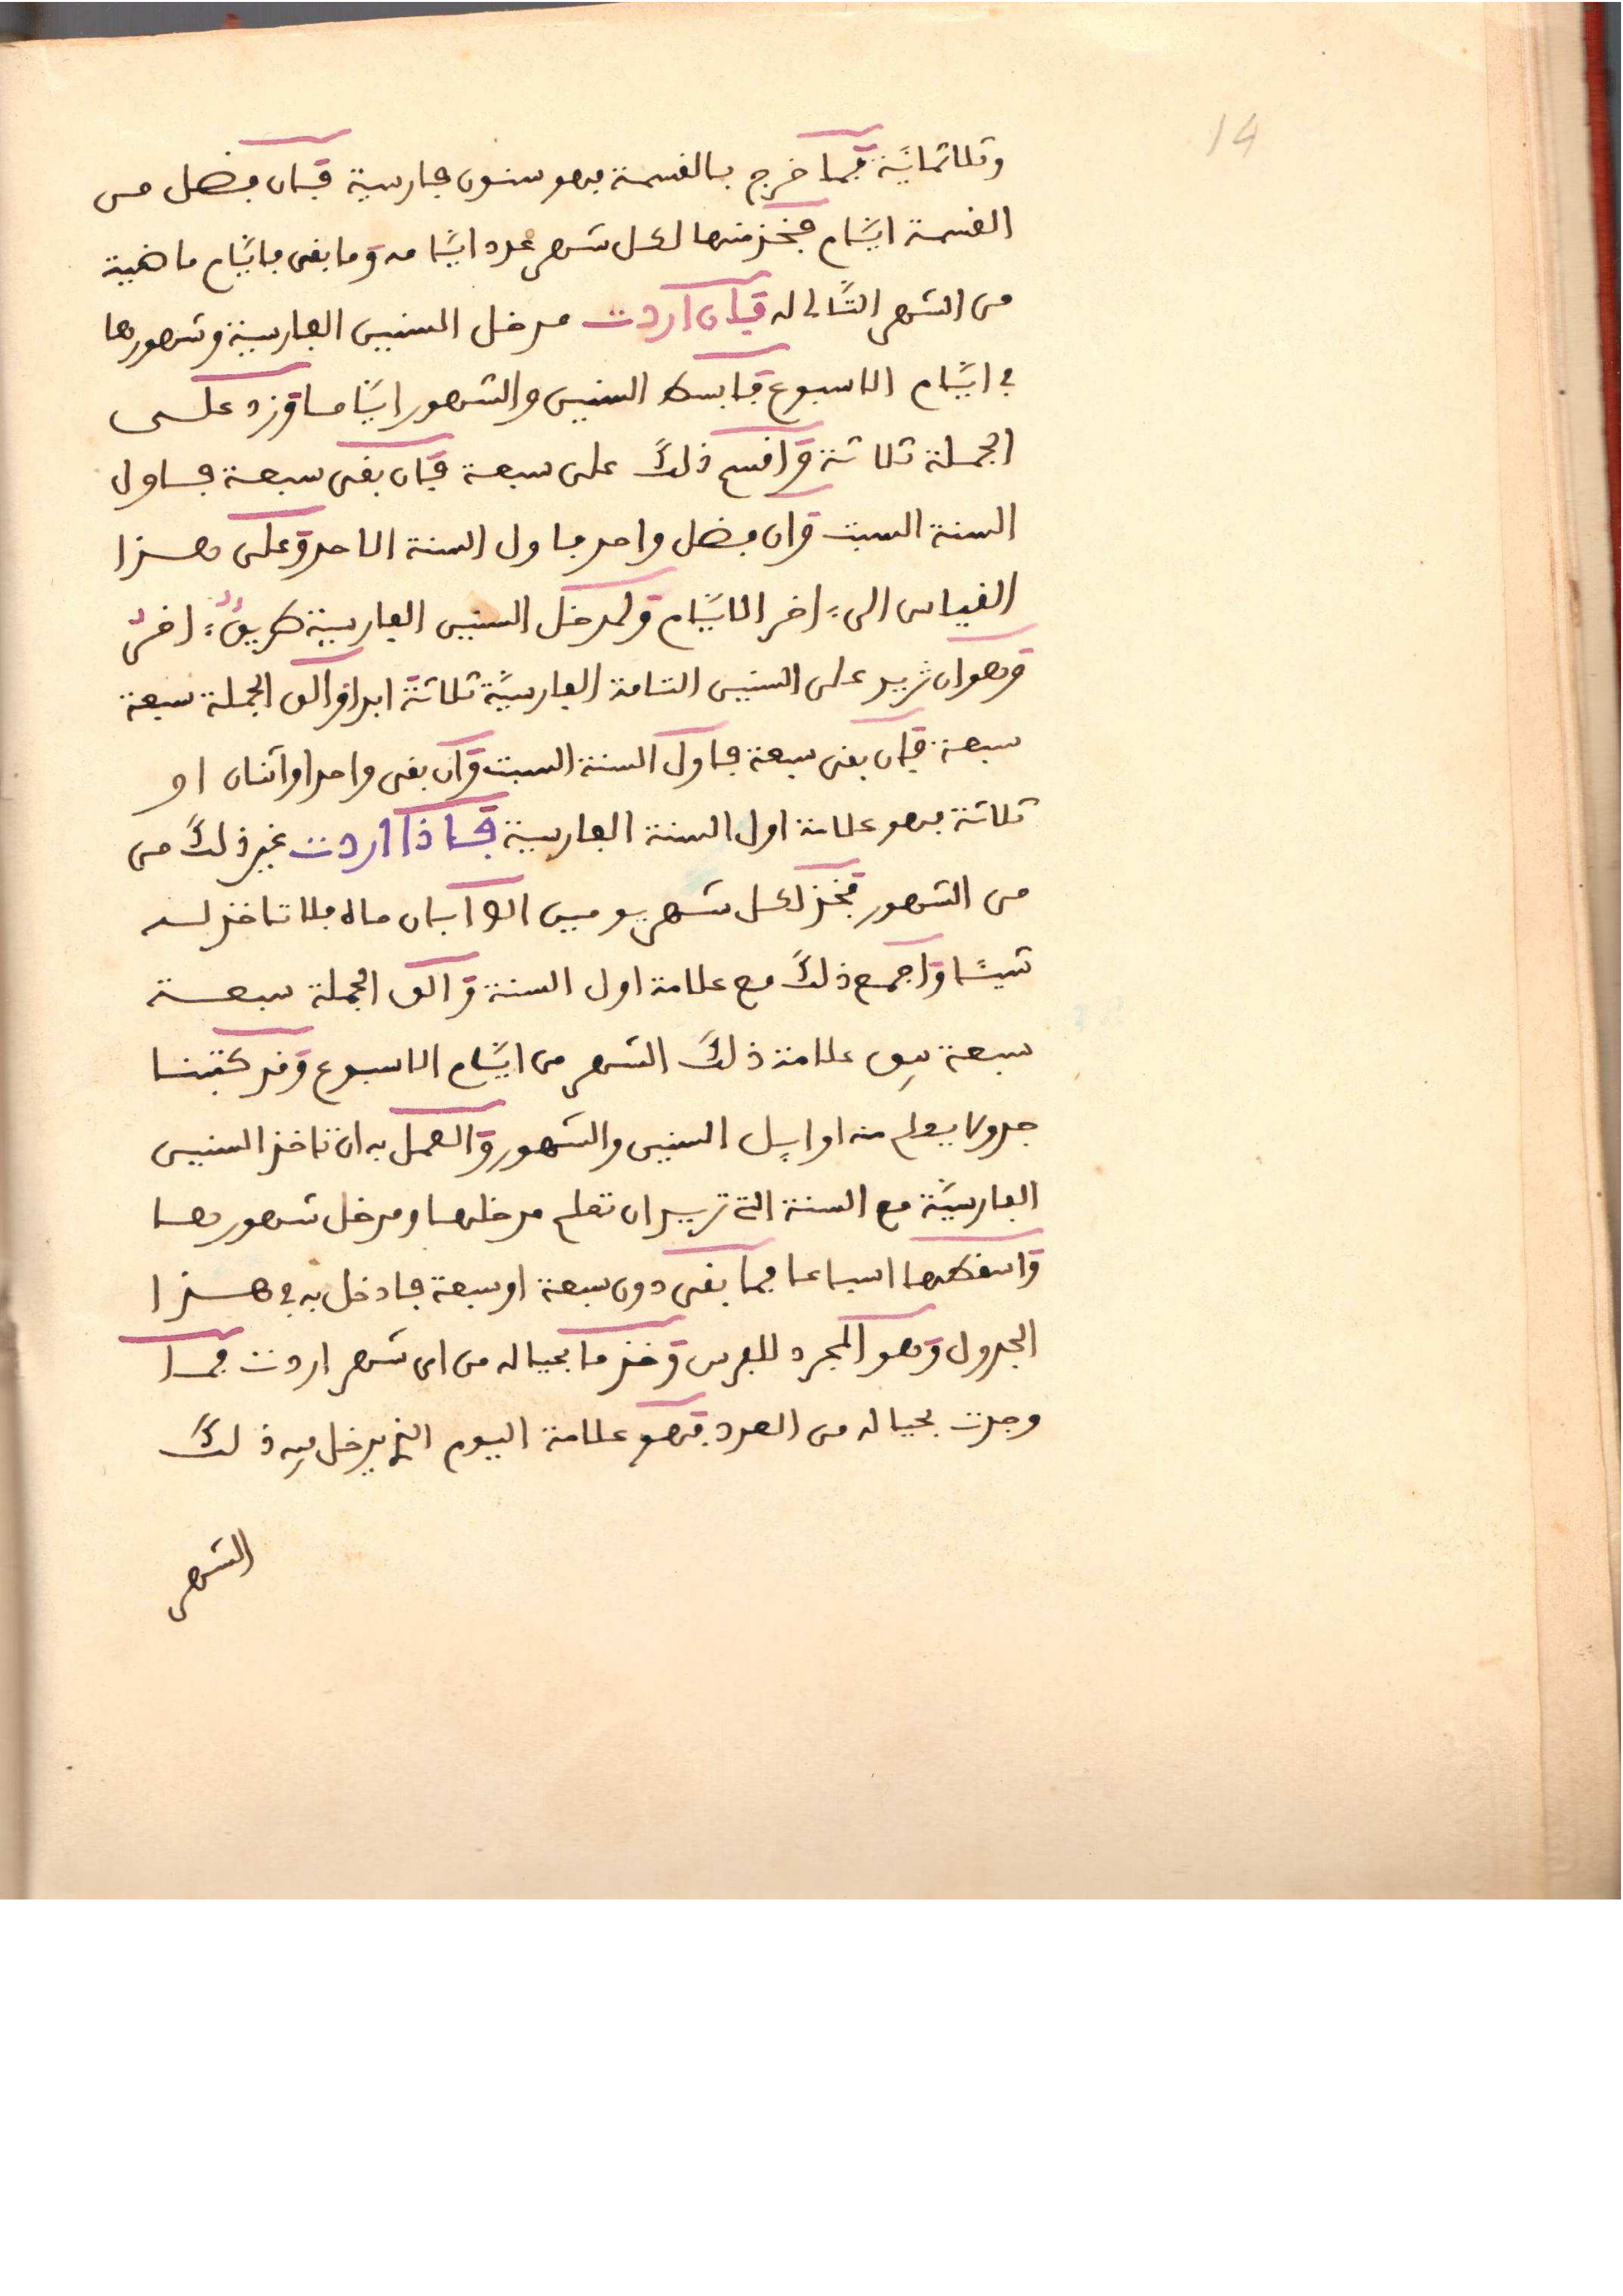 14
وثلاثمائة فما خرج بالقسمة فهو سنون فارسية فإن فضل من
القسمة ايّام فخذ منها لكل شهر عدد ايّامه وما بقى فايّام ماضية
من الشهر التّالى له فإن اردت مدخل السنين الفارسية وشهورها
في ايّام الاسبوع فابسط السنين والشهور ايّاما وزد على
الجملة ثلاثة واقسم ذلك على سبعة فإن بقى سبعة فاول
السنة السبت وان فضل واحد فاول السنة الاحد وعلى هذا
القياس الى ءاخر الايّام ولمدخل السنين الفارسية طريقٌ ءاخرُ
وهو ان تزيد على السنين التامة الفارسيّة ثلاثة ابدا والق الجملة سبعة
سبعة فإن بقى سبعة فاول السنة السبت وان بقى واحد او اثنان او
ثلاثة فهو علامة اول السنة الفارسية فاذا اردت غير ذلك من
من الشهور فخذ لكل شهر يومين الا ابان ماه فلا تاخذ له
شيئا واجمع ذلك مع علامة اول السنة والق الجملة سبعة
سبعة يبق علامة ذلك الشهر من ايّام الاسبوع وقد كتبنا
جدولا يعلم منه اوايل السنين والشهور والعمل به ان تاخذ السنين
الفارسيّة مع السنة التي تريد ان تعلم مدخلها ومدخل شهورها
واسقطها اسباعا فما بقى دون سبعة او سبعة فادخل به في هذا
الجدول وهو المجرد للفرس وخذ ما بحياله من اى شهر اردت فما
وجدت بحياله من العدد فهو علامة اليوم الذي يدخل فيه ذلك
الشهر